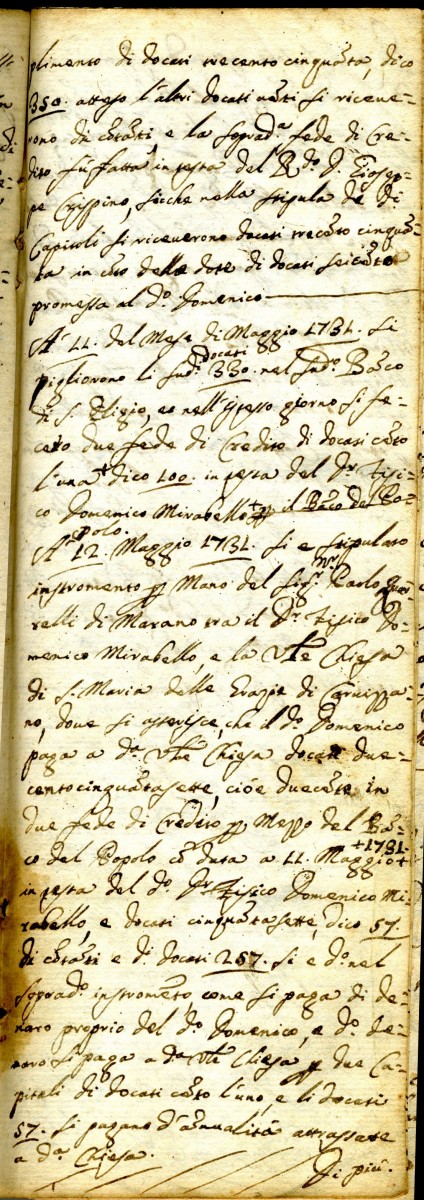 plimento di docati trecento cinquãta, dico
350. atteso l'altri docati vẽti si riceue=
rono di cõtãti, e la soprad.ª fede di Cre=
dito fù fatta in testa del R.do D. Giosep=
pe Crispino, sicche nella stipula de di
Capitoli si riceuerono docati trecẽto cinquã=
ta in cõto delle dote di docati seicẽto
promessa al d.º Domenico
A' 11. del Mese di Maggio 1731. si
pigliorono li sud.i docati 330. nel sud.º Bãco
di S. Eligio, et nell'istesso giorno si fe=
cero due fede di Credito di docati cẽto
l'una + dico 100. in testa del D.r Fisi=
co Domenico Mirabello + p il Bãco del Po=
polo.
A' 12. Maggio 1731. si è stipulato
instromento p Mano del Sig.r N.r Carlo
relli di Marano tra il d.º Fisico Do=
menico Mirabello, e la Vtle Chiesa
di S. Maria delle Grazie di
no, doue si asserisce, che il d.º Domenico
paga a d.ª Vtle Chiesa docati due=
cento cinquãtasette, cioè duecẽto in
due fede di Credito p Mezzo del Bã=
co del Popolo cõ data a 11. Maggio + 1731. +
in testa del d.º D.r Fisico Domenico Mi=
rabello, e docati cinquãtasette, dico 57.
di cõtãti e d.i docati 257. si è d.º nel
soprad.º instromẽto come si paga di de=
naro proprio del d.º Domenico, e d.º de=
naro si paga a d.ª Vtle Chiesa p due Ca=
pitali di docati cẽto l'uno, e li docati
57. si pagano d'ãnualità attrassate
a d.ª Chiesa.
Di più.